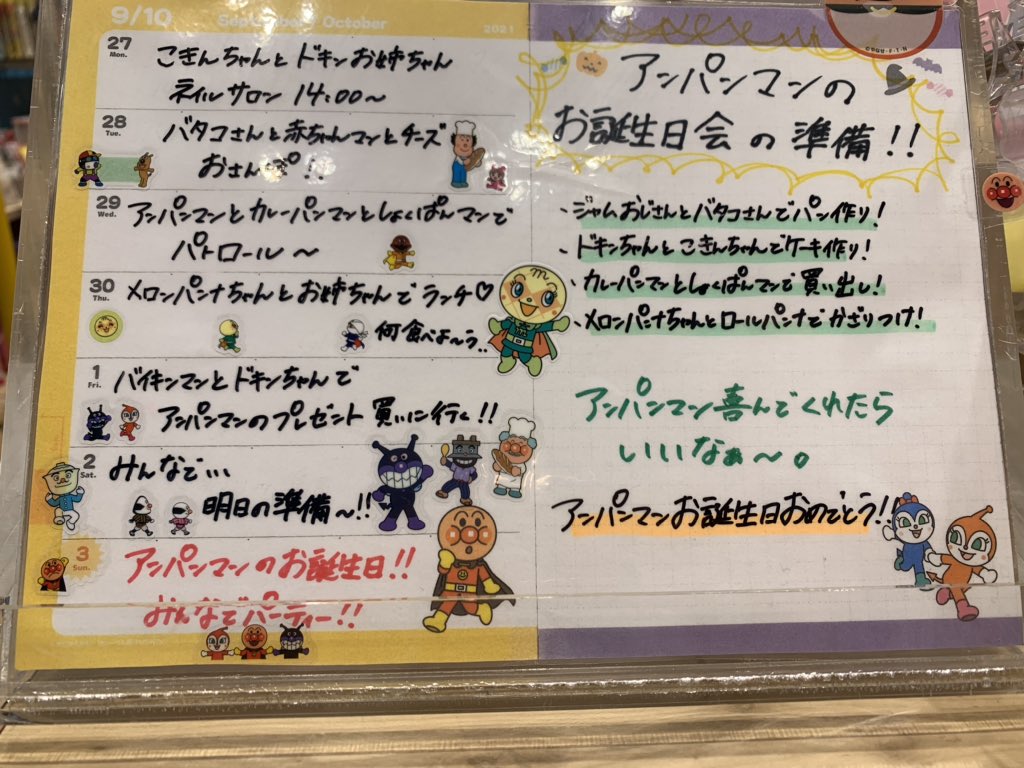 9/10 September / October 2021
27 Mon. こきんちゃんとドキンお姉ちゃん
ネイルサロン 14:00〜
28 Tue. バタコさんと赤ちゃんマンとチーズ
おさんぽ!!
29 Wed. アンパンマンとカレーパンマンとしょくぱんマンで
パトロール〜
30 Thu. メロンパンナちゃんとお姉ちゃんでランチ♡
何食べよ〜う..
1 Fri. バイキンマンとドキンちゃんで
アンパンマンのプレゼント買いに行く!!
2 Sat. みんなで...
明日の準備〜!!
3 Sun. アンパンマンのお誕生日!!
みんなでパーティー!!
アンパンマンの
お誕生日会の準備!!
・ジャムおじさんとバタコさんでパン作り!
・ドキンちゃんとこきんちゃんでケーキ作り!
・カレーパンマンとしょくぱんマンで買い出し!
・メロンパンナちゃんとロールパンナでかざりつけ!
アンパンマン喜んでくれたら
いいなぁ〜。
アンパンマンお誕生日おめでとう!!